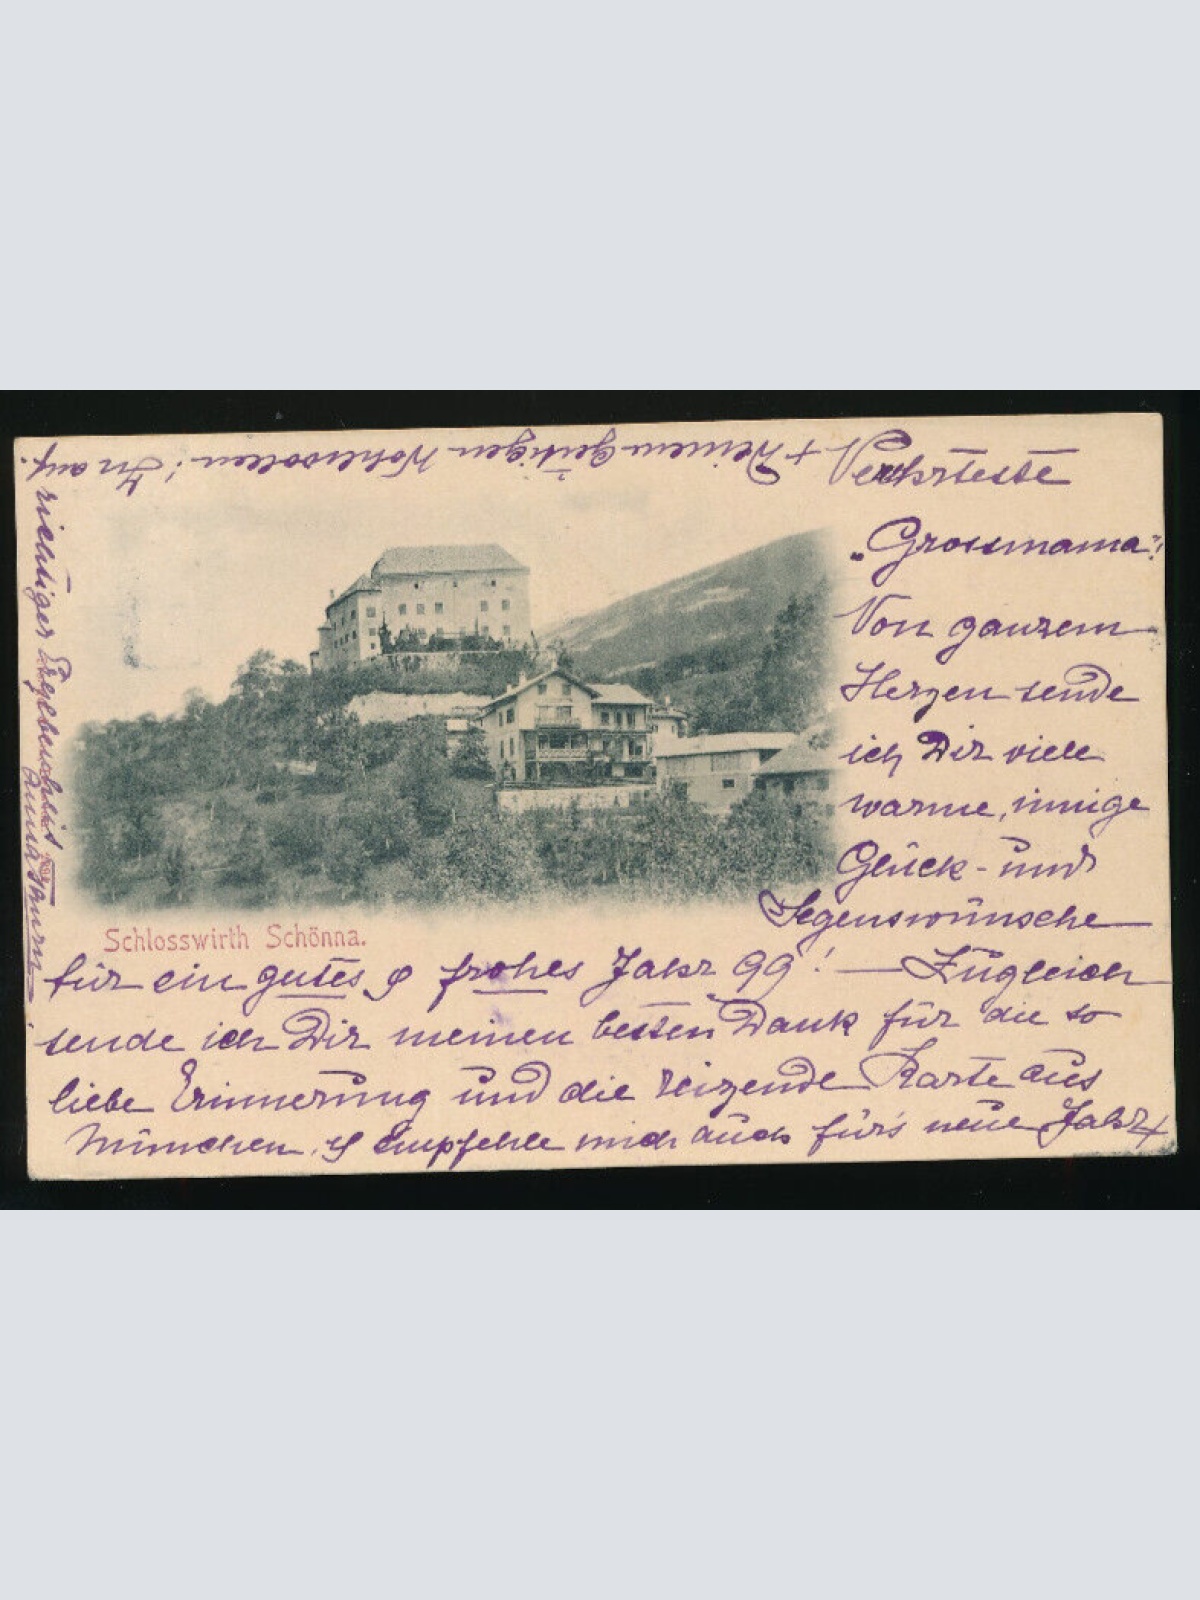 Verehrteste
„Grossmama“!
Von ganzem
Herzen sende
ich Dir viele
warme, innige
Glück- und
Segenswünsche
für ein gutes & frohes Jahr 99! — Zugleich
sende ich Dir meinen besten Dank für die so
liebe Erinnerung und die reizende Karte aus
München. & Empfehle mich auch für's neue Jahr +
+ Deinem gütigen Wohlwollen! In auf-
richtiger Ergebenheit
Anna
Schlosswirth Schönna.